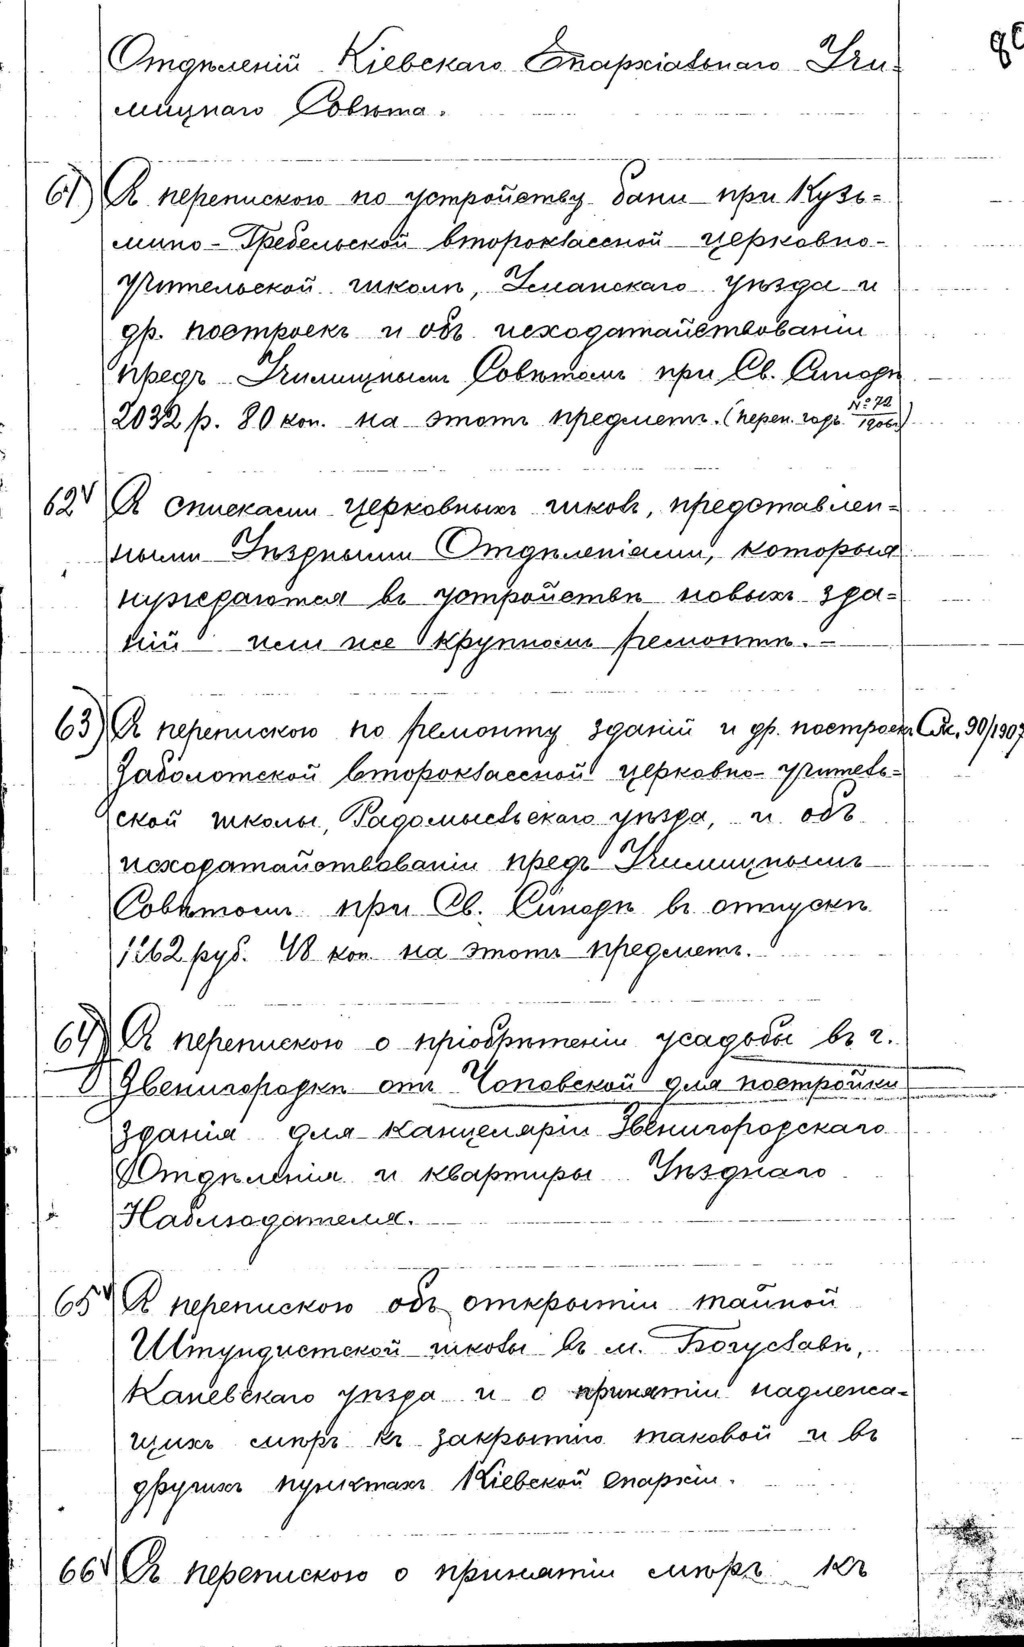 Отдѣленій Кіевскаго Епархіальнаго Учи-
лищнаго Совѣта.
61) Съ перепискою по устройству бани при Кузь=
мино-Гребельской второклассной церковно-
учительской школѣ, Уманскаго уѣзда и
др. построекъ и объ исходатайствованіи
предъ Училищнымъ Совѣтомъ при Св. Синодѣ
2032 р. 80 коп. на этотъ предметъ. (переп. годъ №72/1906г.)
62 Съ списками церковныхъ школъ, представлен=
ными Уѣздными Отдѣленіями, которыя
нуждаются въ устройствѣ новыхъ зда=
ній или же крупномъ ремонтѣ.-
63) Съ перепискою по ремонту зданій и др. построекъ См. 90/1907
Заболотской второклассной церковно-учитель=
ской школы, Радомысльскаго уѣзда, и объ
исходатайствованіи предъ Училищнымъ
Совѣтомъ при Св. Синодѣ въ отпускѣ
1262 руб. 48 коп. на этотъ предметъ.
64) Съ перепискою о пріобрѣтеніи усадьбы въ г.
Звенигородкѣ отъ Чоповской для постройки
зданія для канцеляріи Звенигородскаго
Отдѣленія и квартиры Уѣзднаго
Наблюдателя.
65 Съ перепискою объ открытіи тайной
Штундистской школы въ м. Богуславѣ,
Каневскаго уѣзда и о принятіи надлежа=
щихъ мѣръ къ закрытію таковой и въ
другихъ пунктахъ Кіевской епархіи.
66 Съ перепискою о принятіи мѣръ къ